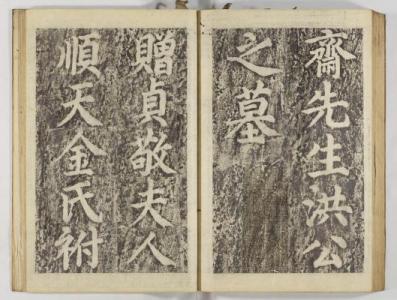 齋先生洪公
之墓
贈貞敬夫人
順天金氏祔